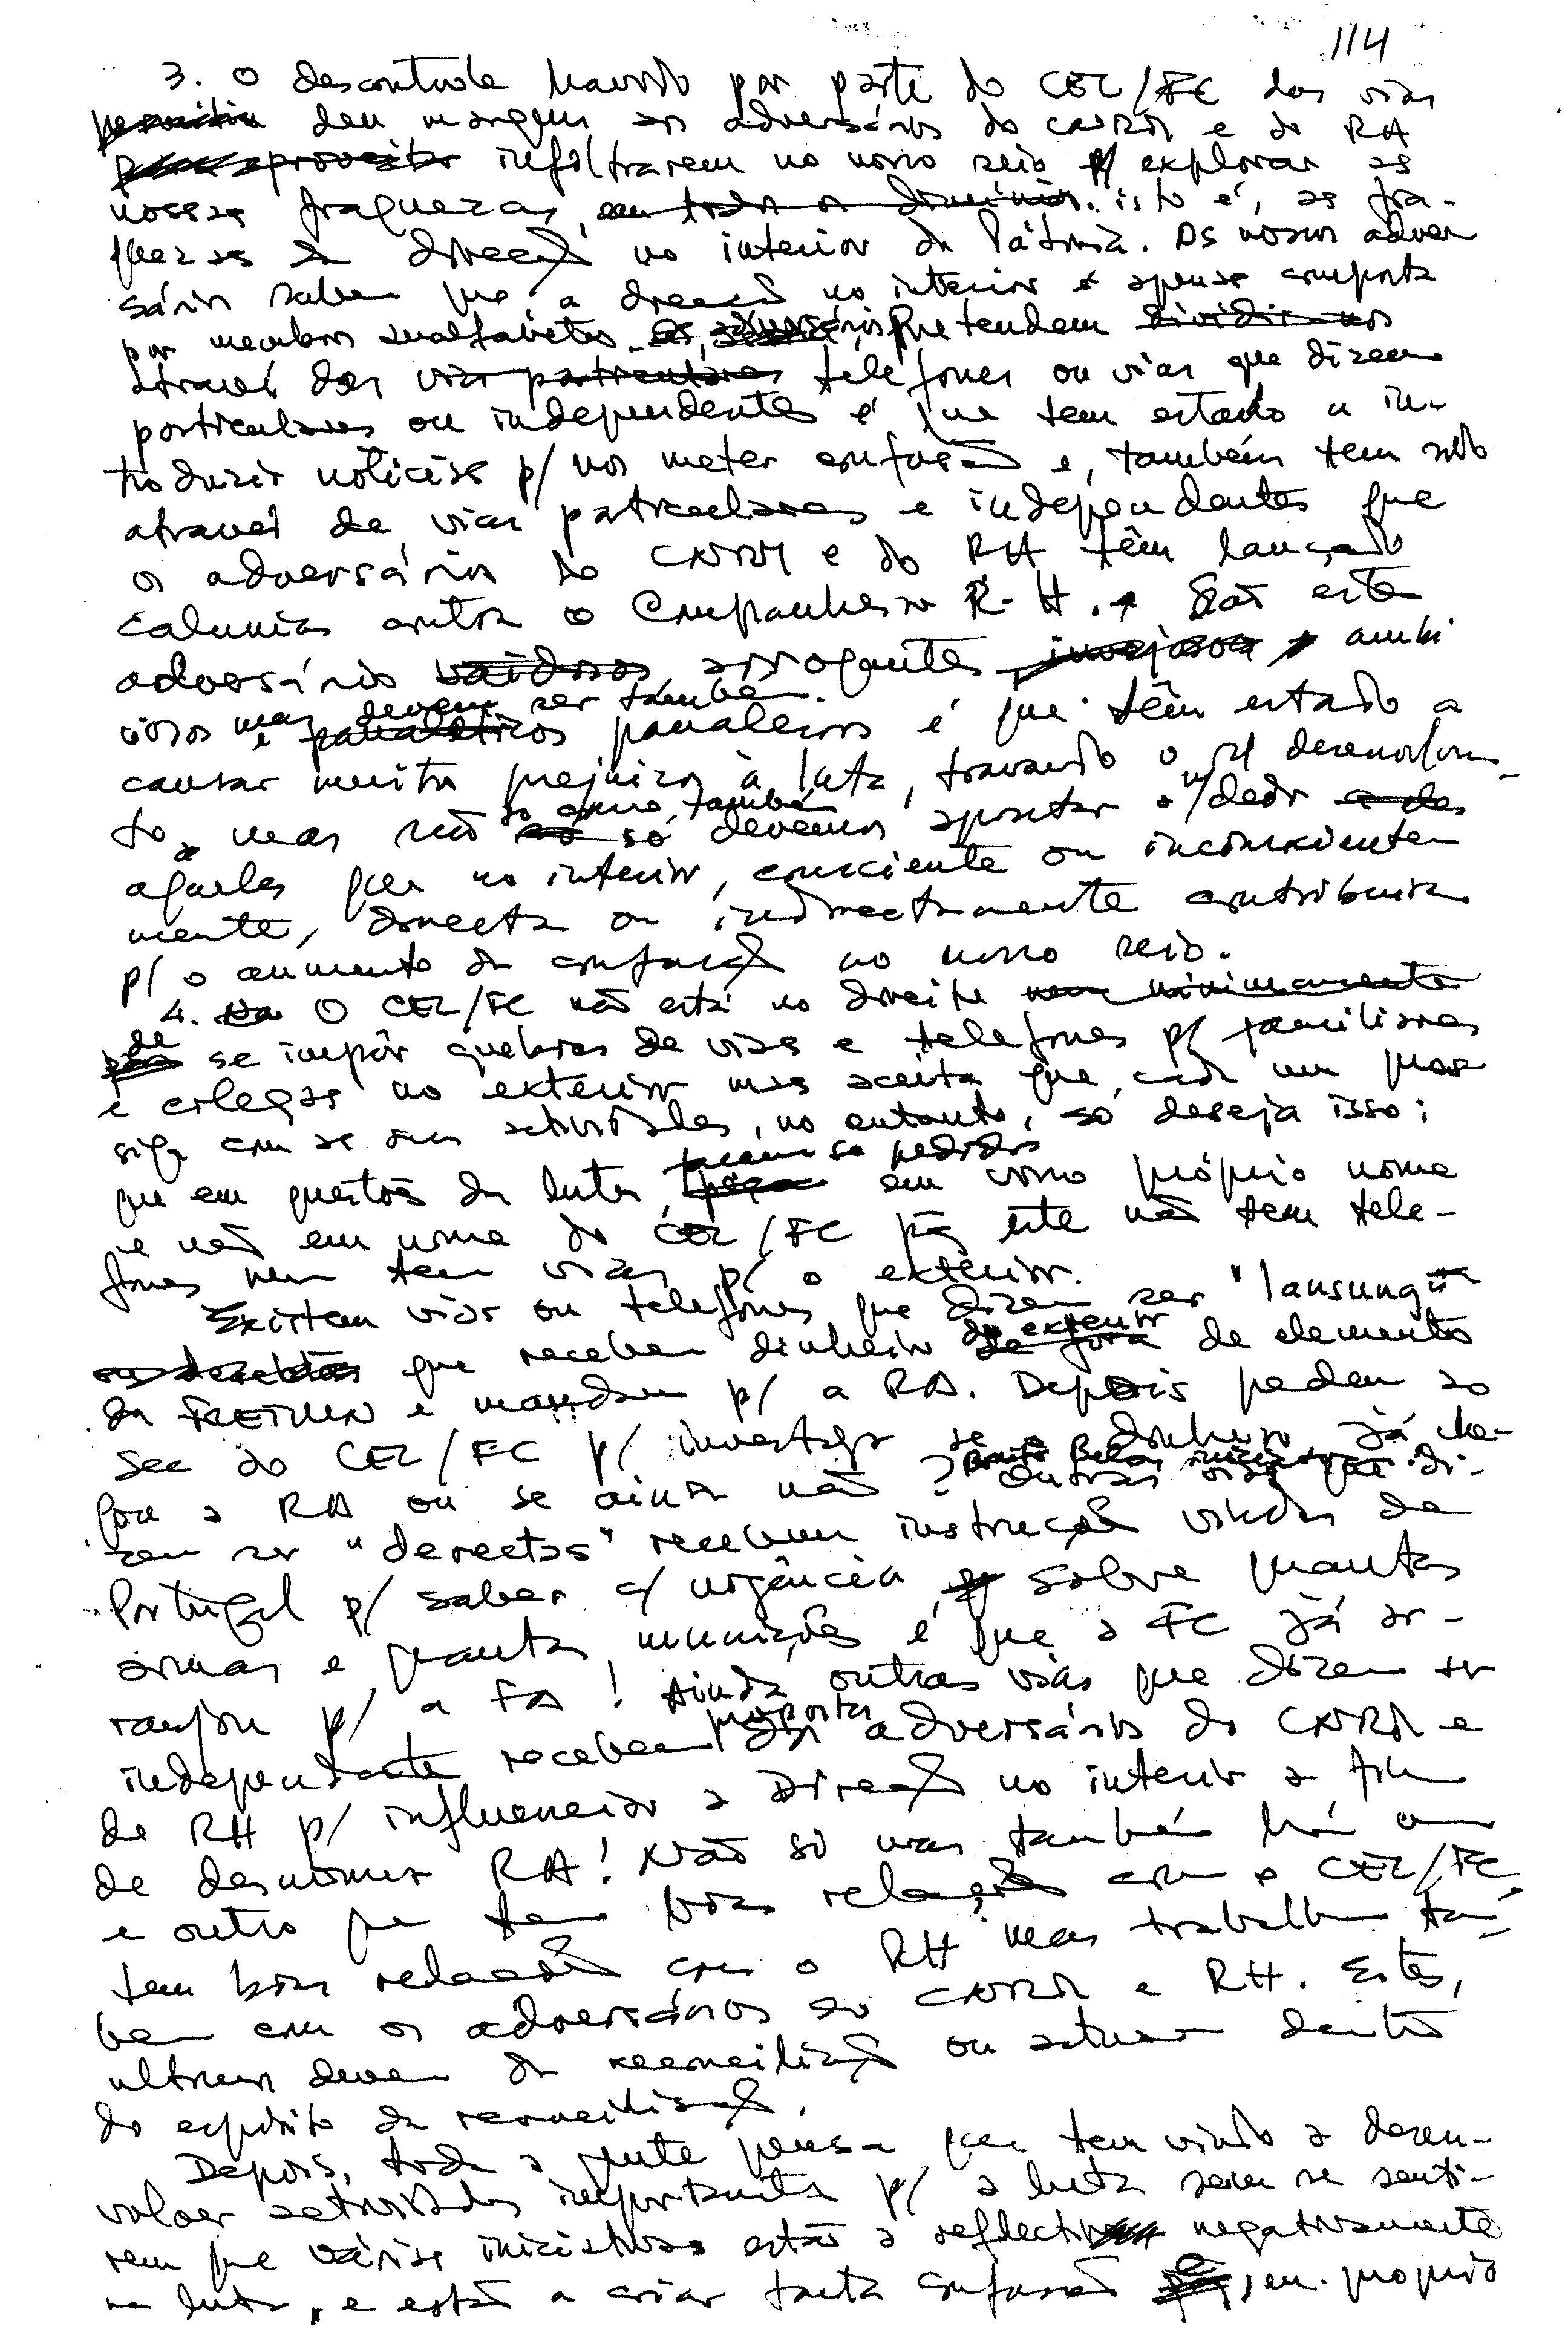 114
3. O descontrole havido por parte do CEL/FC das vias
permitiu deu margem aos adversários do CNRM e do RH
para aproveitar infiltrarem no nosso seio p/ explorar as
nossas fraquezas, em todos os domínios. isto é, as fra-
quezas da direcção no interior da Pátria. Os nossos adver
sários sabem que a direcção no interior é apenas composta
por membros analfabetos. Os adversários pretendem dividir-nos
através das vias particulares telefones ou vias que dizem
particulares ou independentes é que tem estado a in-
troduzir notícias p/ nos meter confusão e, também tem sido
através de vias particulares e independentes que
os adversários do CNRM e do RH têm lançado
calunias contra o Companheiro R.H. São estes
adversários vaidosos arrogantes invejosos ambi
ciosos mas devem ser também.
e panaleiros é que têm estado a
causar muitos prejuizos à luta, travando o s/ desenvolvimen-
to, mas não só como também
só devemos apontar o n/ dedo
aqueles que no interior, consciente ou inconsciente
mente, directa ou indirectamente contribuiram
p/ o aumento da confusão no nosso seio.
4. O CEL/FC não está no direito nem minimamente
de se impôr quebras de vias e telefones p/ familiares
e colegas no exterior mas aceita que, cada um pros
siga com as suas actividades, no entanto, só deseja isso:
que em questões da luta, façam-se pedidos em vosso próprio nome
e não em nome do CEL/FC pq este não tem tele-
fones nem tem vias p/ o exterior.
Existem vias ou telefones que dizem ser "lansung"
que recebem dinheiro do exterior de fora de elementos
da FRETILIN e mandam p/ a RA. Depois pedem ao
Sec do CEL/FC p/ investigar se o dinheiro já che-
gou a RA ou se ainda não? Outras vias que di-
zem ser "derectas" recebem instrucções vindas de
Portugal p/ saber c/ urgência sobre quantas
armas e quantas munições é que a FC já ar-
ranjou p/ a FA! Ainda outras vias que dizem ser
independente recebem propostas dos adversários do CNRM e
de RH p/ influenciar a Direcção no interior a fim
de destruir RH! Não só mas também há um
e outro que tem boas relações com o CEL/FC,
tem boas relações com o RH mas trabalham tam-
bem com os adversários do CNRM e RH. Estes,
ultimos devem da reconciliação ou actuam dentro
do espírito da reconciliação.
Depois, toda a gente pensa que tem vindo a desen-
volver actividades importantes p/ a luta sem se senti-
rem que várias iniciativas estão a reflectir negativamente
na luta, e estão a criar tanta confusão seu proprio